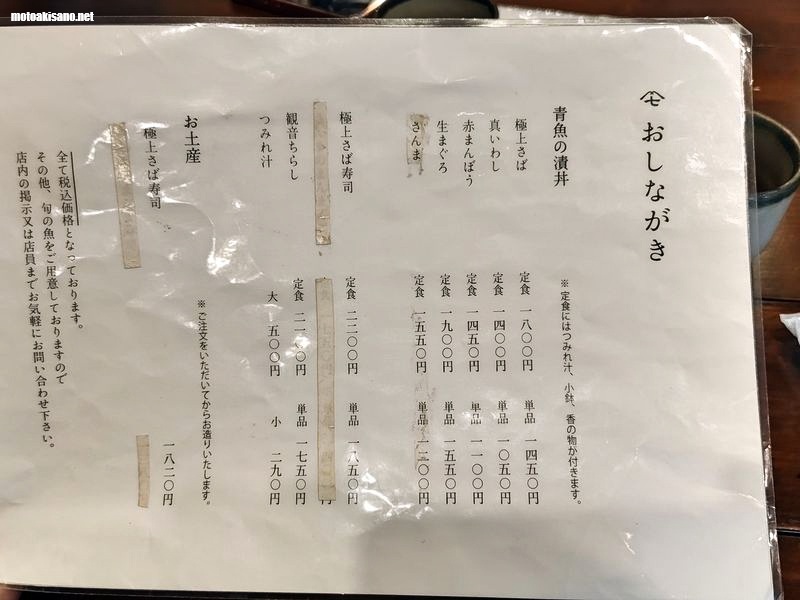 motoakisano.net
おしながき
青魚の漬丼 ※定食にはつみれ汁、小鉢、香の物が付きます。
極上さば 定食 一八〇〇円 単品 一四五〇円
真いわし 定食 一四〇〇円 単品 一〇五〇円
赤まんぼう 定食 一四五〇円 単品 一一〇〇円
生まぐろ 定食 一九〇〇円 単品 一五五〇円
さんま 定食 一五五〇円 単品 一二〇〇円
極上さば寿司 定食 二二〇〇円 単品 一八五〇円
観音ちらし 定食 二一〇〇円 単品 一七五〇円
つみれ汁 大 五〇〇円 小 二九〇円
お土産 ※ご注文をいただいてからお造りいたします。
極上さば寿司 一八二〇円
全て税込価格となっております。
その他、旬の魚をご用意しておりますので
店内の掲示又は店員までお気軽にお問い合わせ下さい。